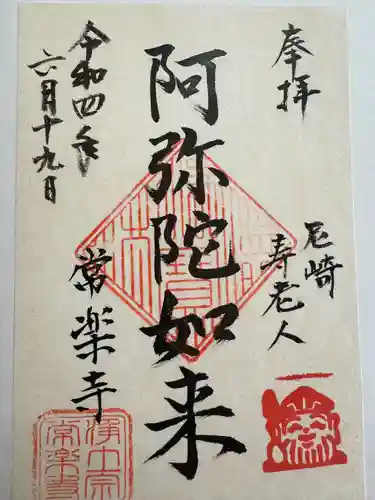 奉拝
尼崎
寿老人
阿弥陀如来
常楽寺
令和四年
六月十九日
浄土宗
常楽寺